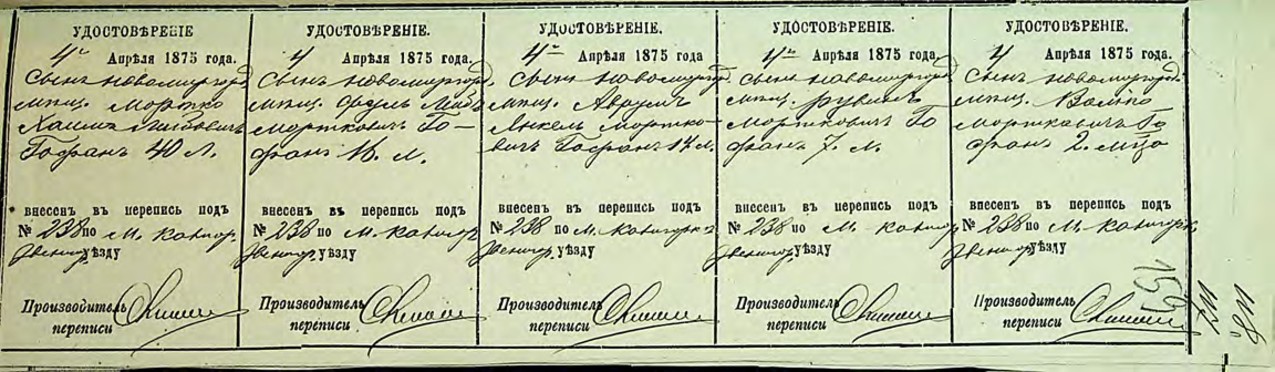 УДОСТОВѢРЕНІЕ
4го Апрѣля 1875 года.
Сынъ новомиргород.
мѣщ. Мортко
Хаимъ Лейбовичъ
Гофранъ 40 л.
внесенъ въ перепись подъ
№ 238 по м. Катиор.
Звенигор. уѣзду
Производитель
переписи
УДОСТОВѢРЕНІЕ.
4 Апрѣля 1875 года.
Сынъ новомиргород.
мѣщ. Фроимъ Лейбъ
Мортковичъ Го-
франъ 16. л.
внесенъ въ перепись подъ
№ 238 по м. Катиор.
Звенигор. уѣзду
Производитель
переписи
УДОСТОВѢРЕНІЕ.
4го Апрѣля 1875 года
Сынъ новомиргород.
мѣщ. Аврумъ
Янкель Мортко-
вичъ Гофранъ 14 л.
внесенъ въ перепись подъ
№ 238 по м.
Звенигор. уѣзду
Производитель
переписи
УДОСТОВѢРЕНІЕ.
4го Апрѣля 1875 года.
Сынъ новомиргород.
мѣщ. Рувинъ
Мортковичъ Го
франъ 7. л.
внесенъ въ перепись подъ
№ 238 по м.
Звенигор. уѣзду
Производитель
переписи
УДОСТОВѢРЕНІЕ.
4 Апрѣля 1875 года.
Сынъ новомиргород.
мѣщ. Волько
Мортковичъ Го
франъ 2. м-ца
внесенъ въ перепись подъ
№ 238 по м.
Звенигор. уѣзду
Производитель
переписи